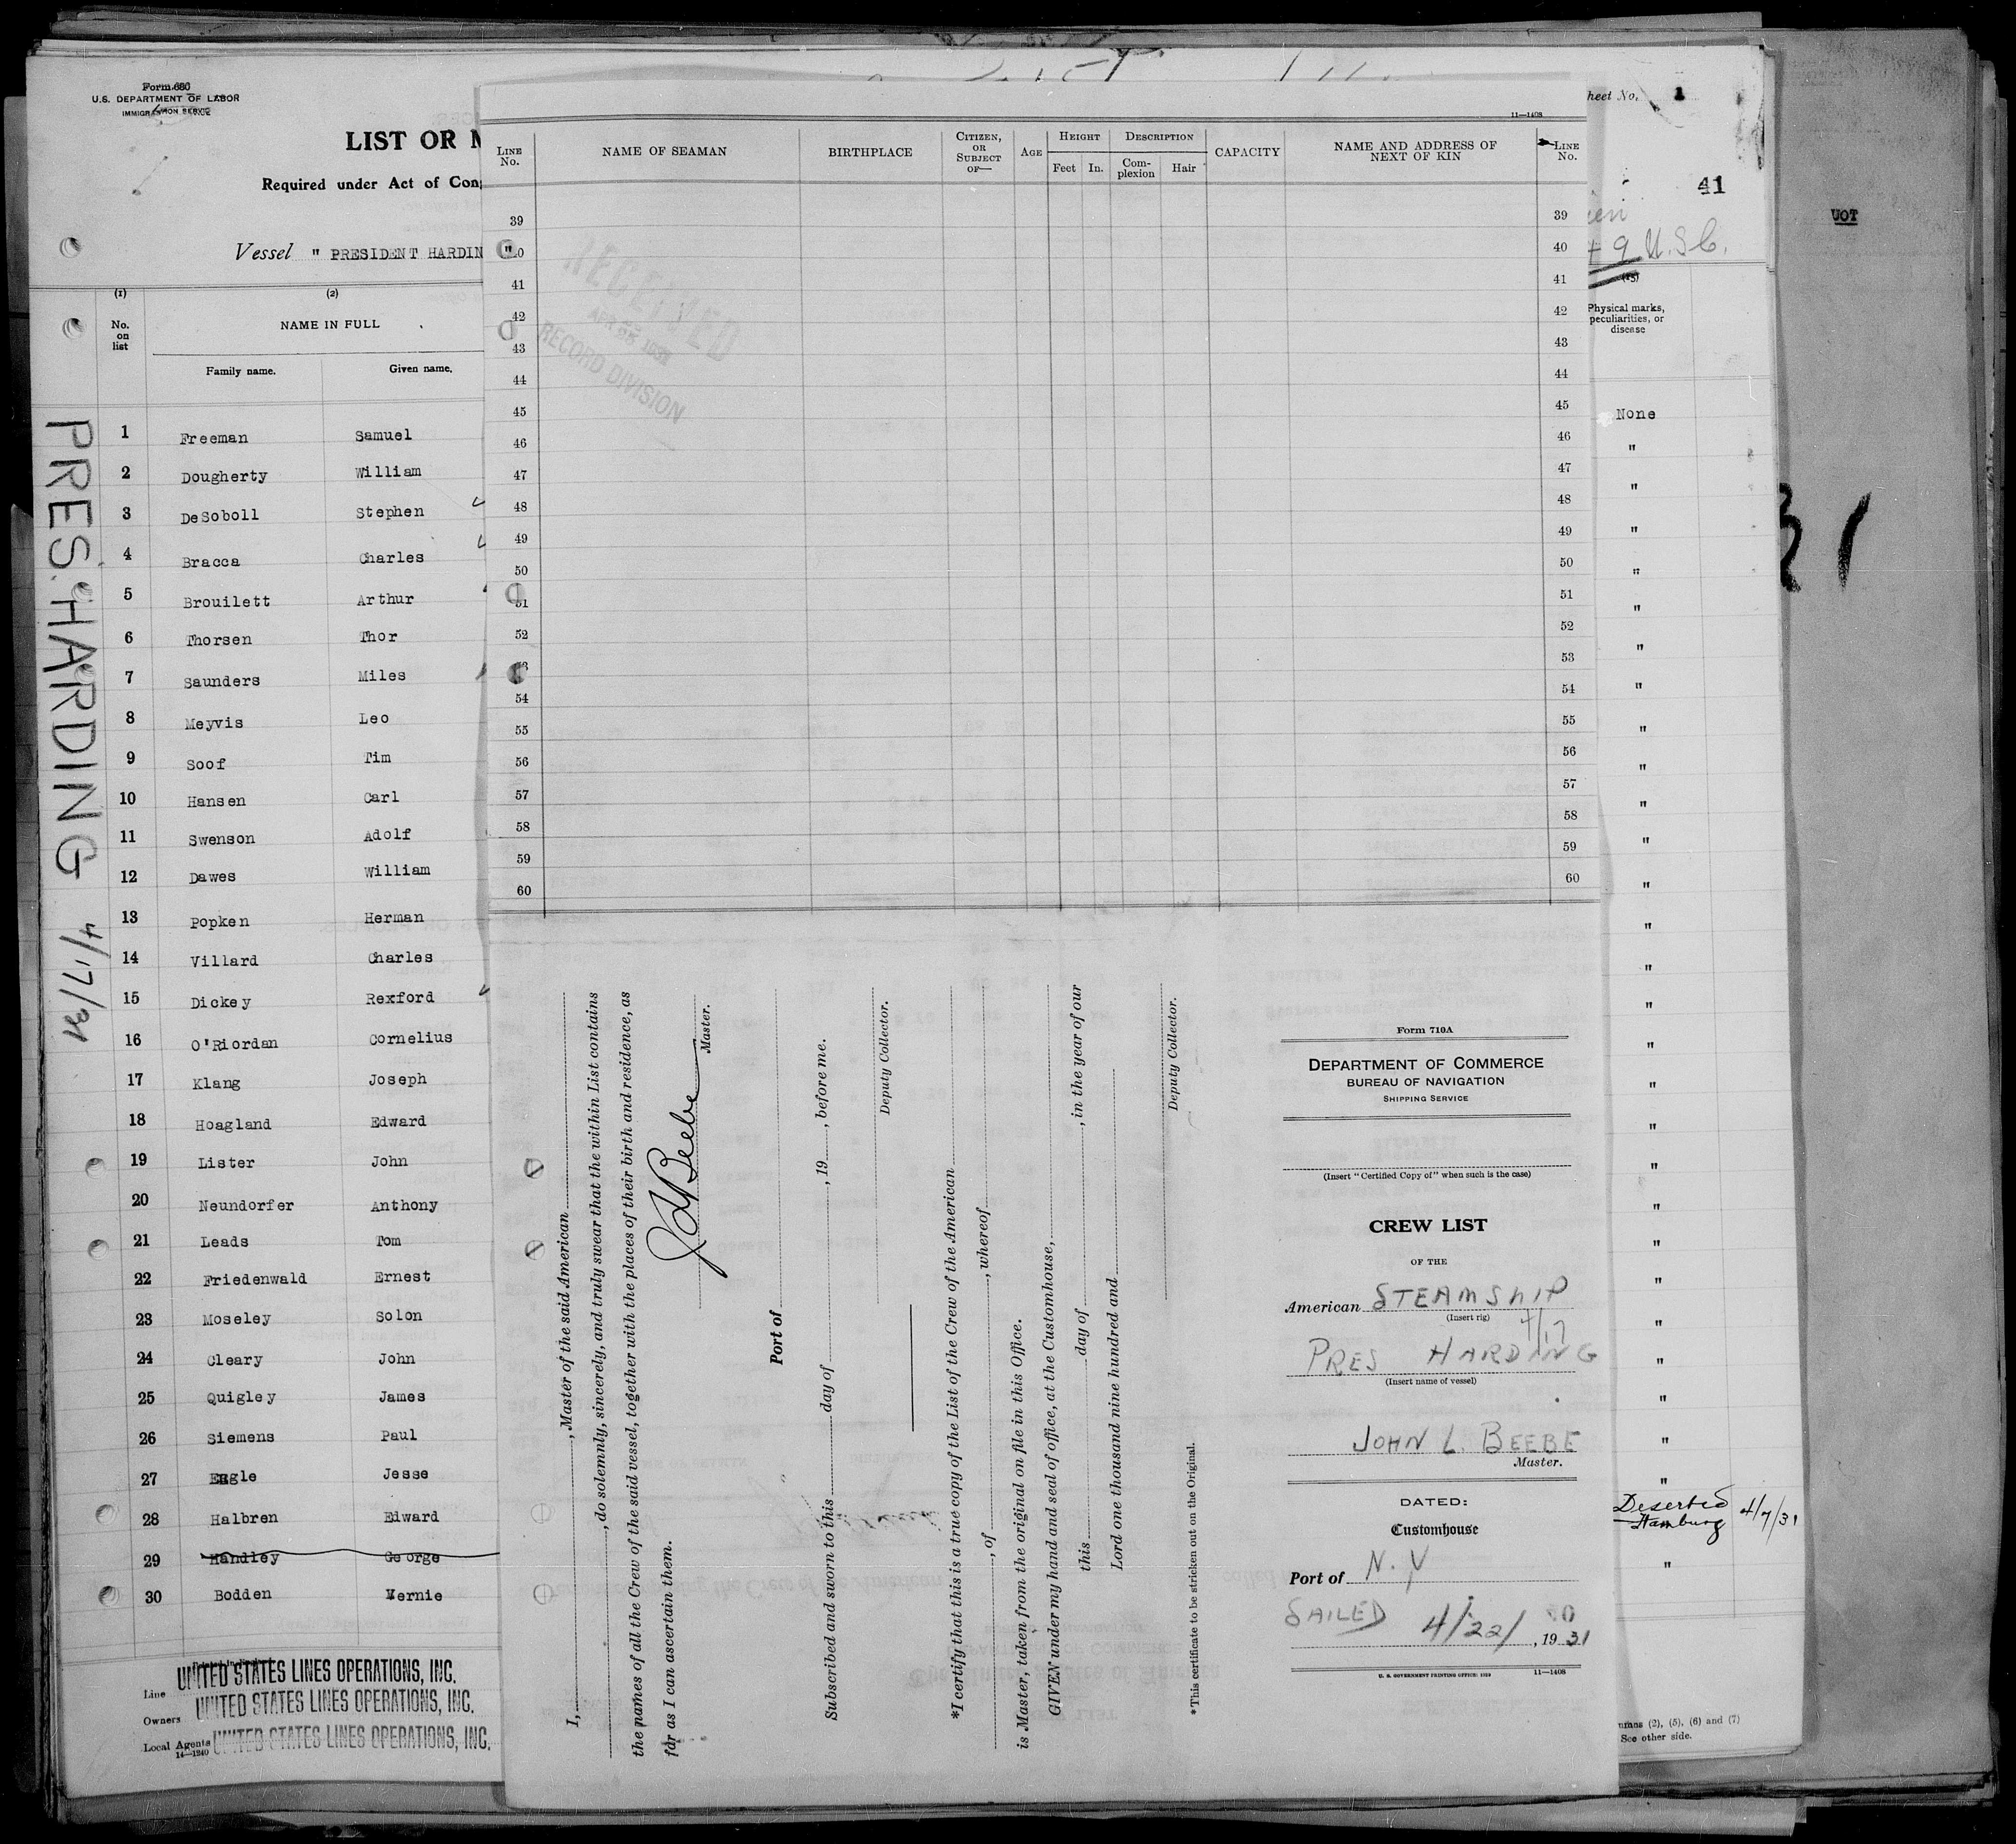 Form 680
U.S. DEPARTMENT OF LABOR
IMMIGRATION SERVICE
LIST OR
Required under Act of Con
Vessel " PRESIDENT HARDIN "
(1) (2)
No. on list
NAME IN FULL
Family name. Given name.
1 Freeman Samuel
2 Dougherty William
3 DeSoboll Stephen
4 Bracca Charles
5 Brouilett Arthur
6 Thorsen Thor
7 Saunders Miles
8 Meyvis Leo
9 Soof Tim
10 Hansen Carl
11 Swenson Adolf
12 Dawes William
13 Popken Herman
14 Villard Charles
15 Dickey Rexford
16 O'Riordan Cornelius
17 Klang Joseph
18 Hoagland Edward
19 Lister John
20 Neundorfer Anthony
21 Leads Tom
22 Friedenwald Ernest
23 Moseley Solon
24 Cleary John
25 Quigley James
26 Siemens Paul
27 Eagle Jesse
28 Halbren Edward
29 Handley George
30 Bodden Vernie
Line UNITED STATES LINES OPERATIONS, INC.
Owners UNITED STATES LINES OPERATIONS, INC.
Local Agents UNITED STATES LINES OPERATIONS, INC.
14—1240
PRES. HARDING 4/17/31
11—1408
LINE No.
NAME OF SEAMAN
BIRTHPLACE
CITIZEN, OR SUBJECT OF—
AGE
HEIGHT
Feet In.
DESCRIPTION
Complexion Hair
CAPACITY
NAME AND ADDRESS OF NEXT OF KIN
LINE No.
39 39
40 40
41 41
42 42
43 43
44 44
45 45
46 46
47 47
48 48
49 49
50 50
51 51
52 52
53 53
54 54
55 55
56 56
57 57
58 58
59 59
60 60
RECEIVED
APR 1931
RECORD DIVISION
I, , Master of the said American
, do solemnly, sincerely, and truly swear that the within List contains
the names of all the Crew of the said vessel, together with the places of their birth and residence, as
far as I can ascertain them.
J L Beebe
Master.
Port of
Subscribed and sworn to this day of , 19 , before me.
Deputy Collector.
*I certify that this is a true copy of the List of the Crew of the American
, of , whereof
is Master, taken from the original on file in this Office.
GIVEN under my hand and seal of office, at the Customhouse,
this day of , in the year of our
Lord one thousand nine hundred and
Deputy Collector.
*This certificate to be stricken out on the Original.
Form 710A
DEPARTMENT OF COMMERCE
BUREAU OF NAVIGATION
SHIPPING SERVICE
(Insert "Certified Copy of" when such is the case)
CREW LIST
OF THE
American STEAMSHIP
(Insert rig)
4/17
PRES HARDING
(Insert name of vessel)
JOHN L. BEEBE
Master.
DATED:
Customhouse
Port of N.Y
SAILED 4/22/, 1931
U. S. GOVERNMENT PRINTING OFFICE: 11—1408
heet No. 1
41
9 U.S.C.
(15)
Physical marks, peculiarities, or disease
None
"
"
"
"
"
"
"
"
"
"
"
"
"
"
"
"
"
"
"
"
"
"
"
"
"
"
Deserted
Hamburg 4/7/31
"
umns (2), (5), (6) and (7)
See other side.
31